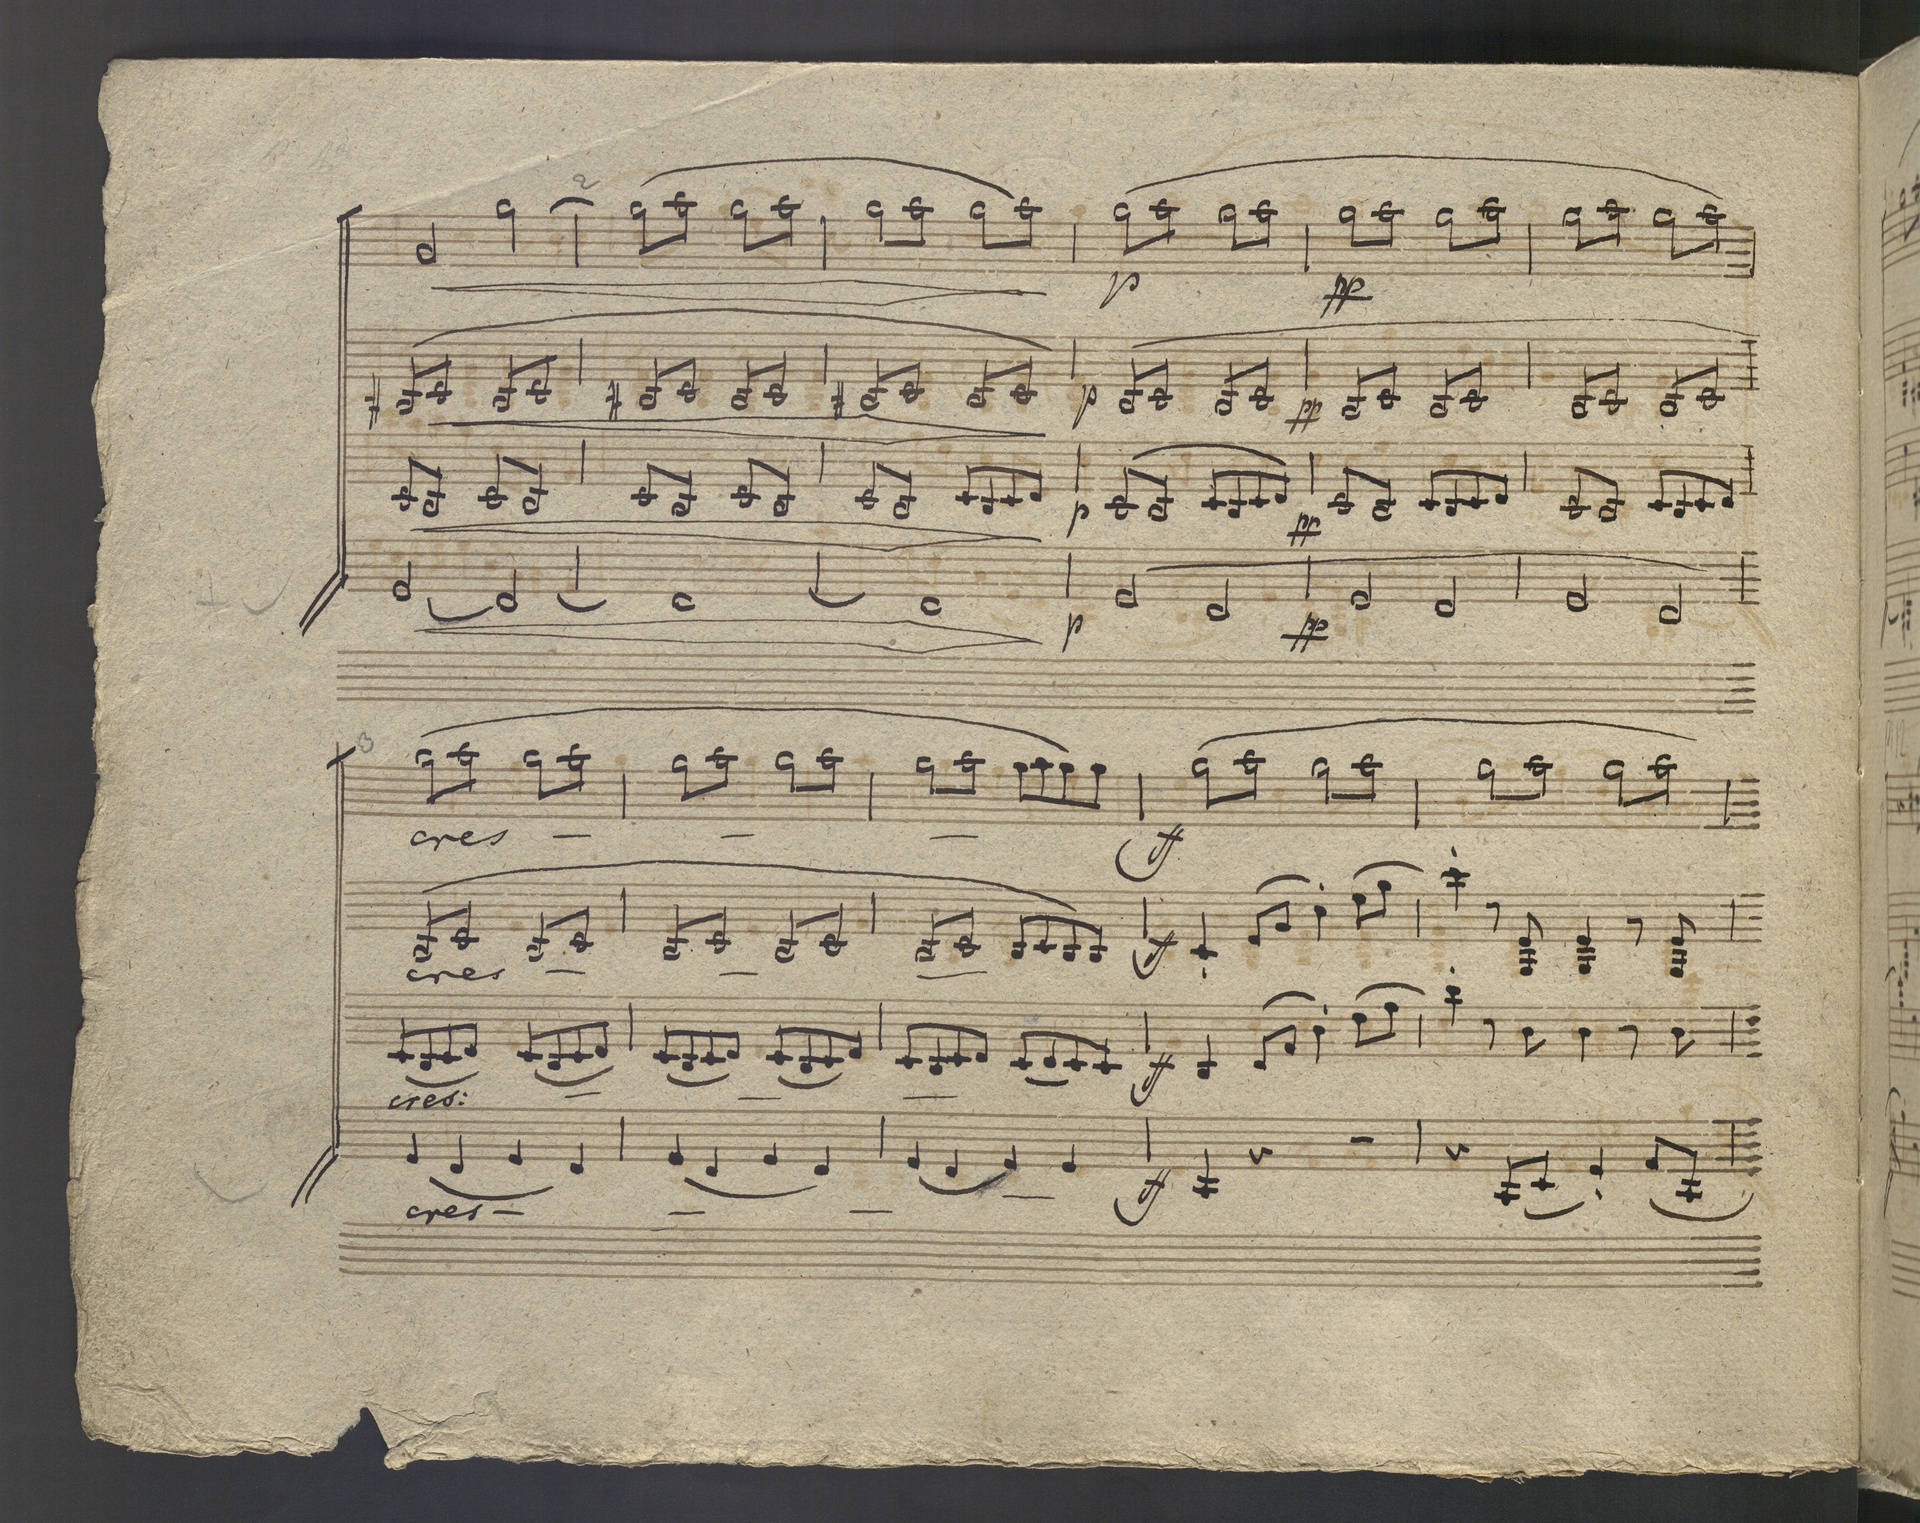 2
p pp
p pp
p pp
p pp
3
cres — — — ff
cres — — — ff
cres: — — — ff
cres — — — — ff